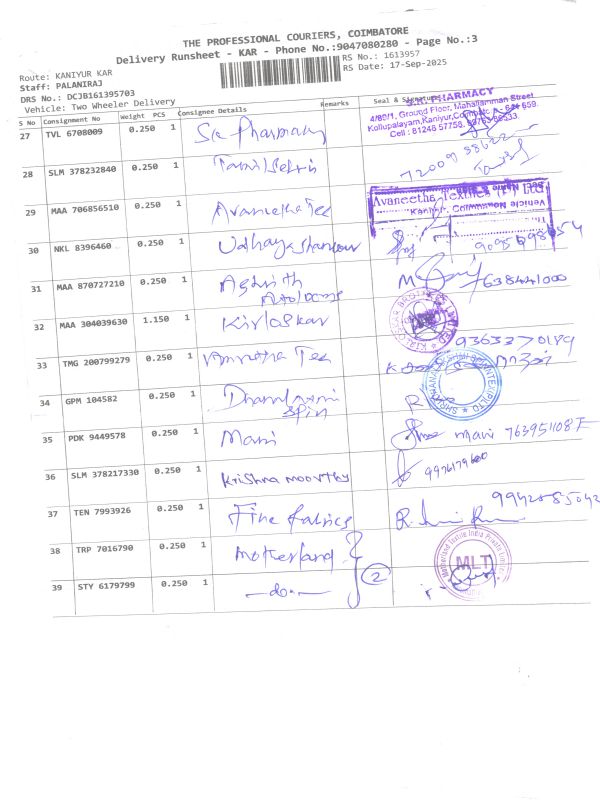 THE PROFESSIONAL COURIERS, COIMBATORE
Delivery Runsheet - KAR - Phone No.:9047080280 - Page No.:3
Route: KANIYUR KAR
RS No.: 1613957
Staff: PALANIRAJ
RS Date: 17-Sep-2025
DRS No.: DCJB161395703
Vehicle: Two Wheeler Delivery
S No Consignment No Weight PCS Consignee Details Remarks Seal & Signature
27 TVL 6708009 0.250 1 Sri Pharmacy
S.R. PHARMACY
4/89/1, Ground Floor, Mahaliamman Street
Kollupalayam, Kaniyur, Coimbatore - 641 659.
28 SLM 378232840 0.250 1 Tamil Selvi
29 MAA 706856510 0.250 1 Avaneetha Tex
Avaneetha Textiles (P) Ltd
30 NKL 8396460 0.250 1 Udhaya shankar
31 MAA 870727210 0.250 1 7638441000
32 MAA 304039630 1.150 1 Kirloskar
33 TMG 200799279 0.250 1 Tex 9363270189
34 GPM 104582 0.250 1 Dhanalaxmi
spin
35 PDK 9449578 0.250 1 Mani mani
36 SLM 378217330 0.250 1 Krishna moorthy
37 TEN 7993926 0.250 1 Fine fabrics
38 TRP 7016790 0.250 1 Motherland
MLT
39 STY 6179799 0.250 1 -do- 2